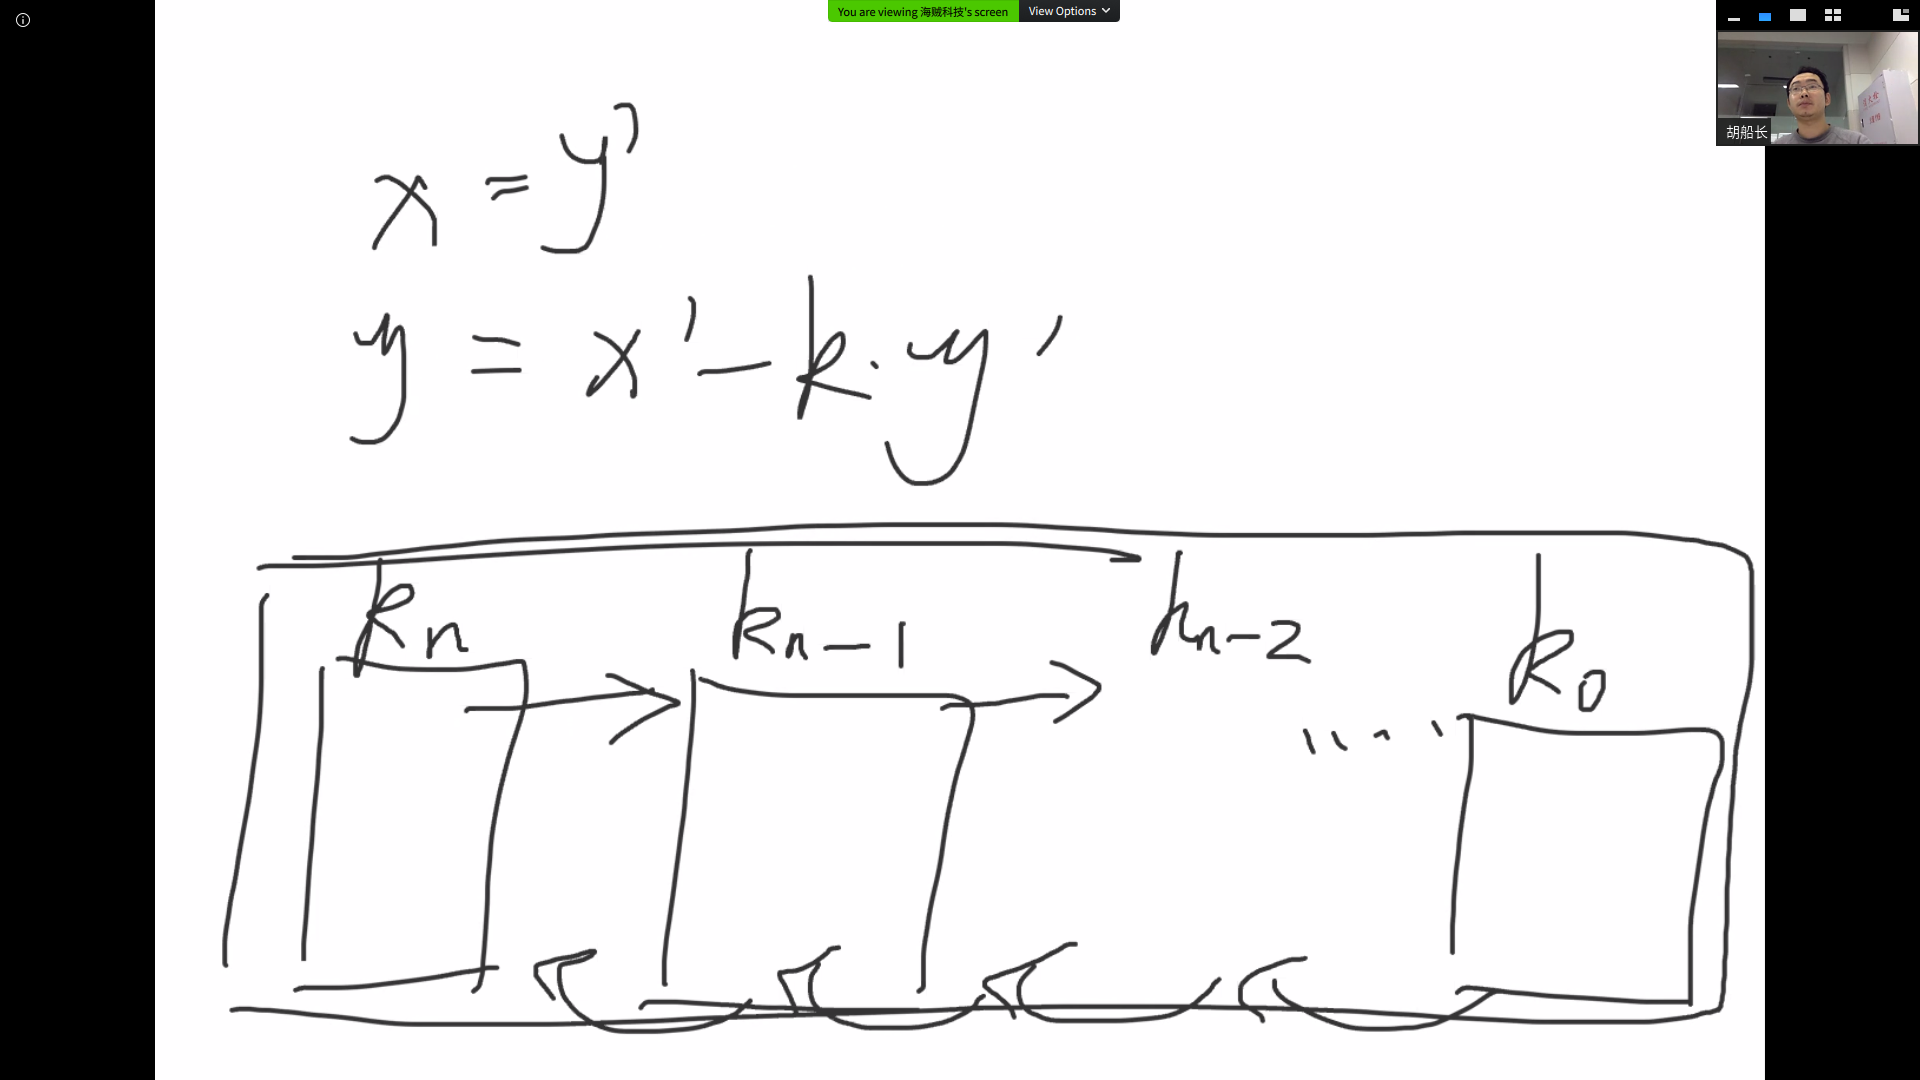 You are viewing 海贼科技's screen View Options
胡船长
x = y'
y = x' - k · y'
kn kn-1 kn-2 k0
....